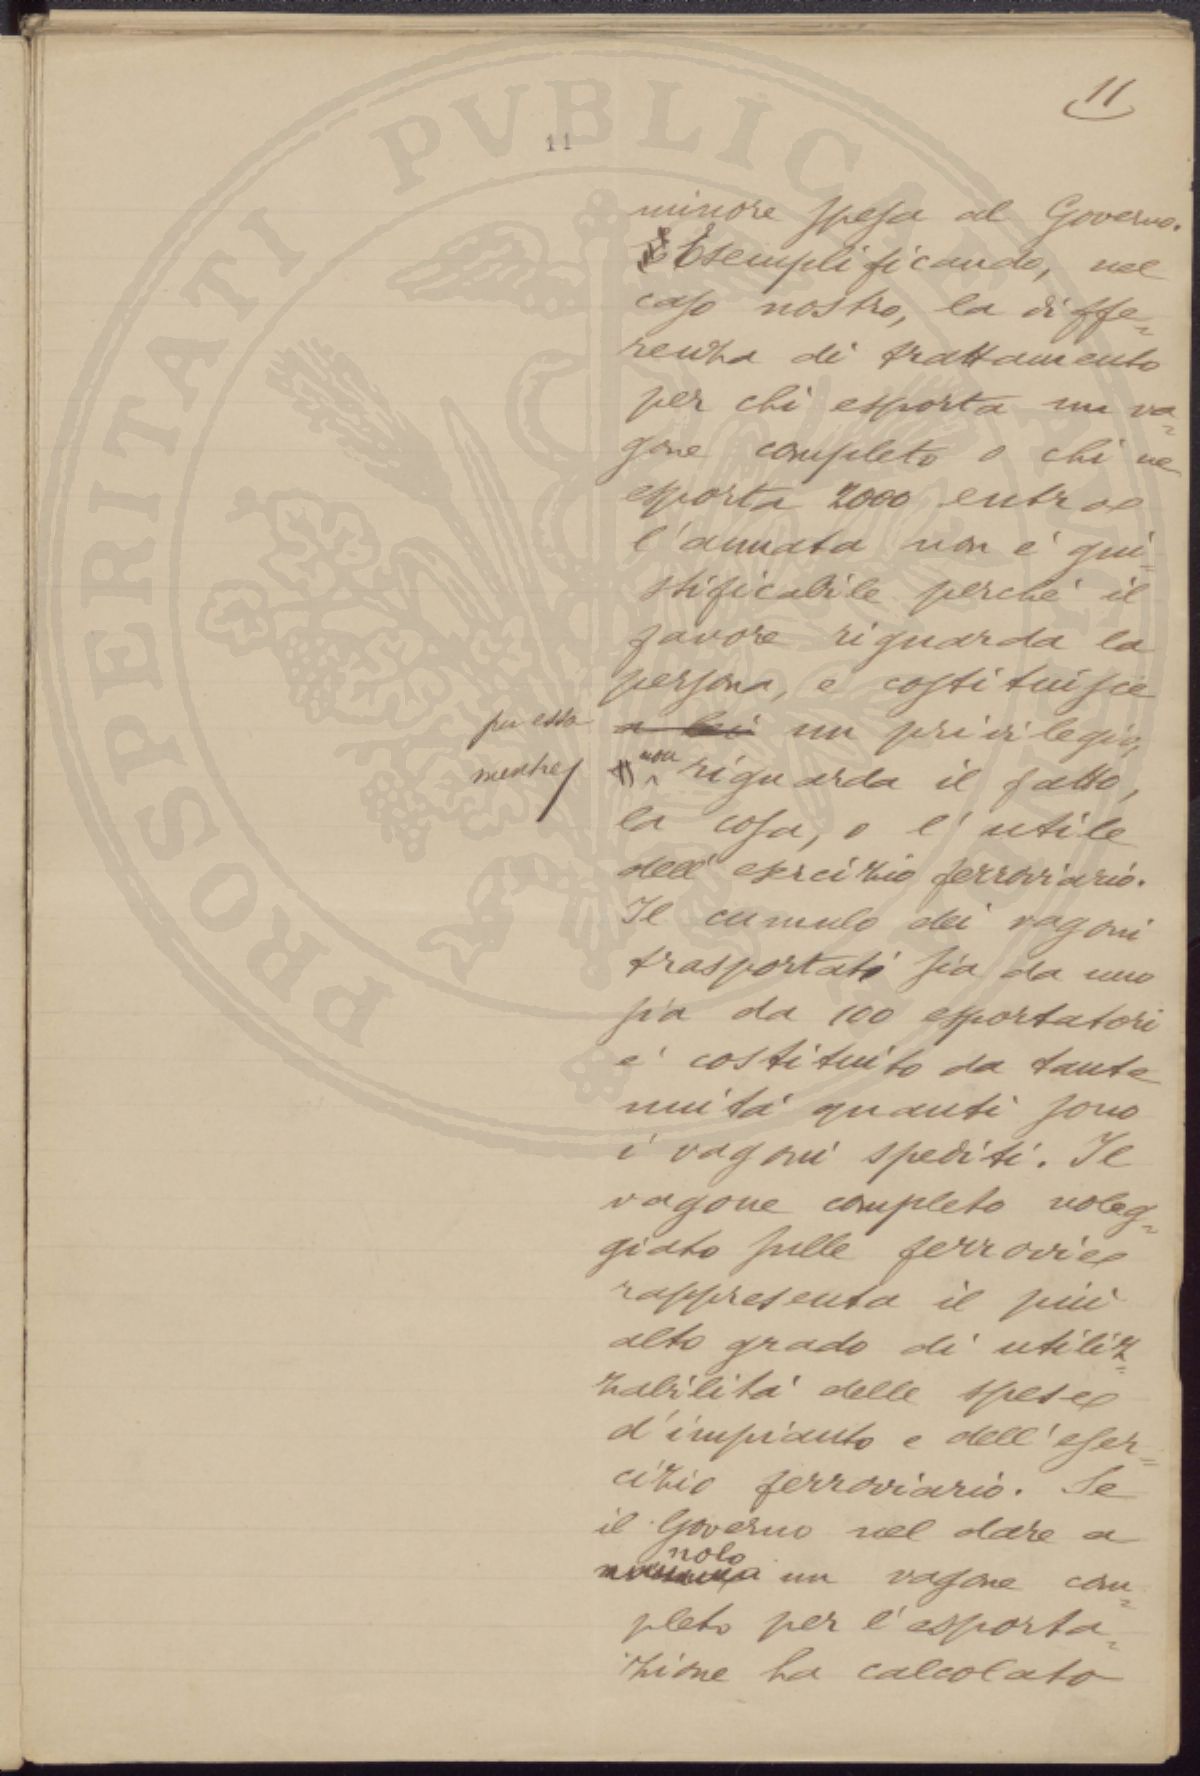 11
11
minore spesa al Governo.
Esemplificando, nel
caso nostro, la diffe=
renza di trattamento
per chi esporta un va=
gone completo o chi ne
esporta 2000 entro
l'annata non é giu=
stificabile perché il
favore riguarda la
persona, e costituisce
per essa a lei un privilegio,
mentre non riguarda il fatto,
la cosa, o l'utile
dell'esercizio ferroviario.
Il cumulo dei vagoni
trasportati sia da uno
sia da 100 esportatori
é costituito da tante
unitá quanti sono
i vagoni spediti. Il
vagone completo noleg=
giato sulle ferrovie
rappresenta il piú
alto grado di utiliz=
zabilitá delle spese
d'impianto e dell'eser=
cizio ferroviario. Se
il Governo nel dare a
nolo
un vagone com=
pleto per l'esporta=
zione ha calcolato
PROSPERITATI PVBLICAE